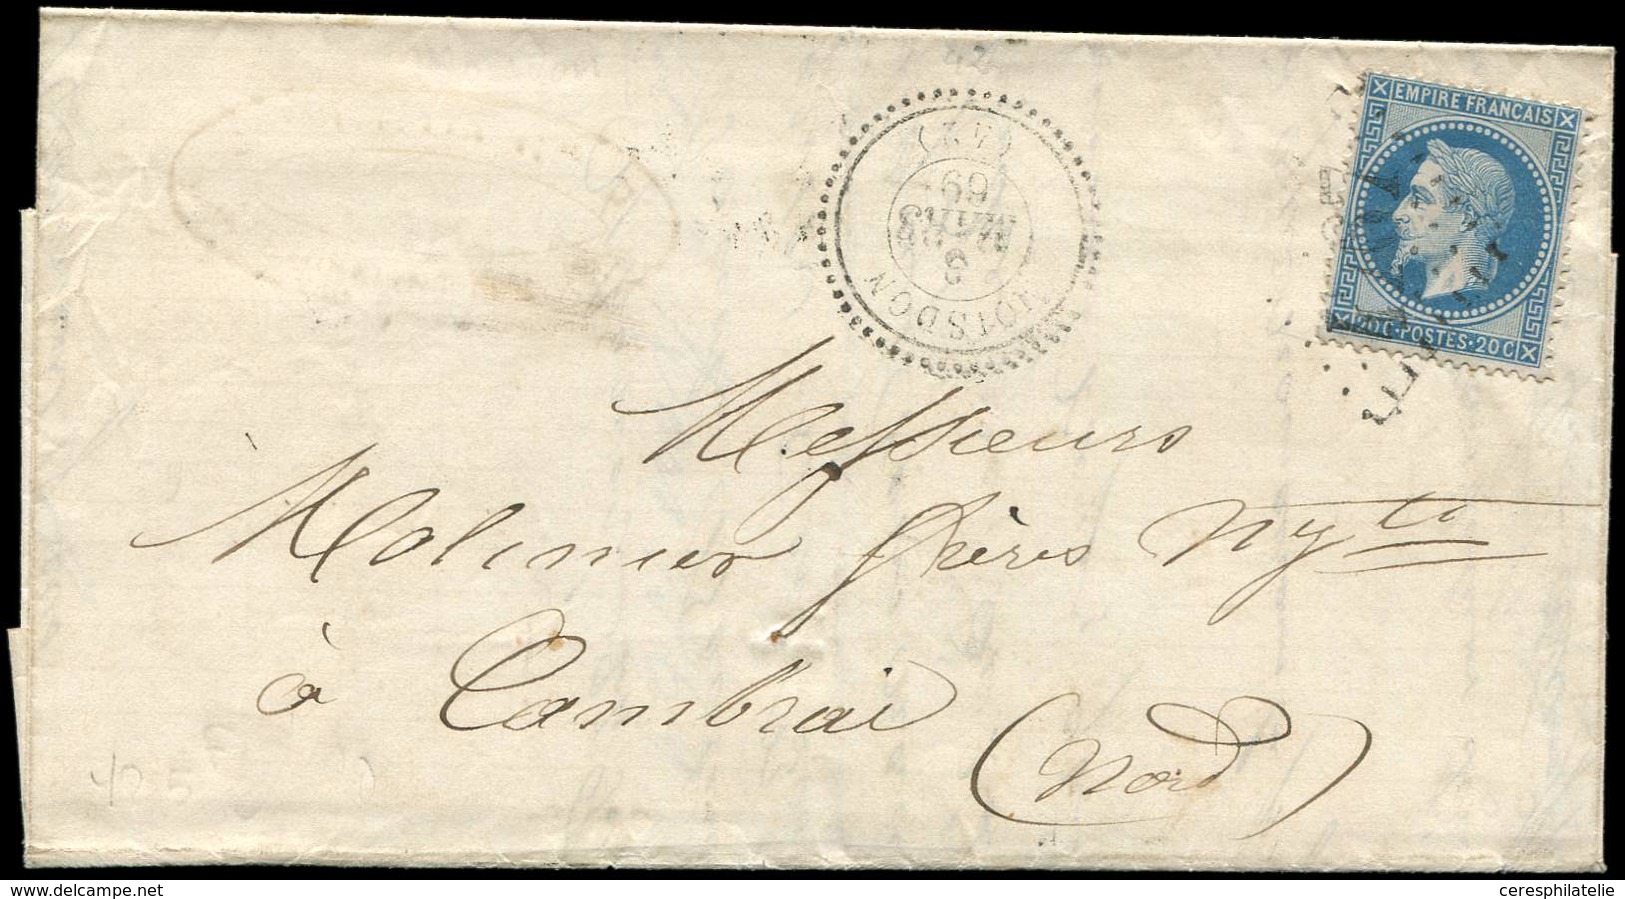 EMPIRE FRANÇAIS
20 C · POSTES · 20 C
JOISDON
3
MARS
69
(42)
Messieurs
Molinier frères Nég.ts
à Cambrai
(Nord)
www.delcampe.net
ceresphilatelie